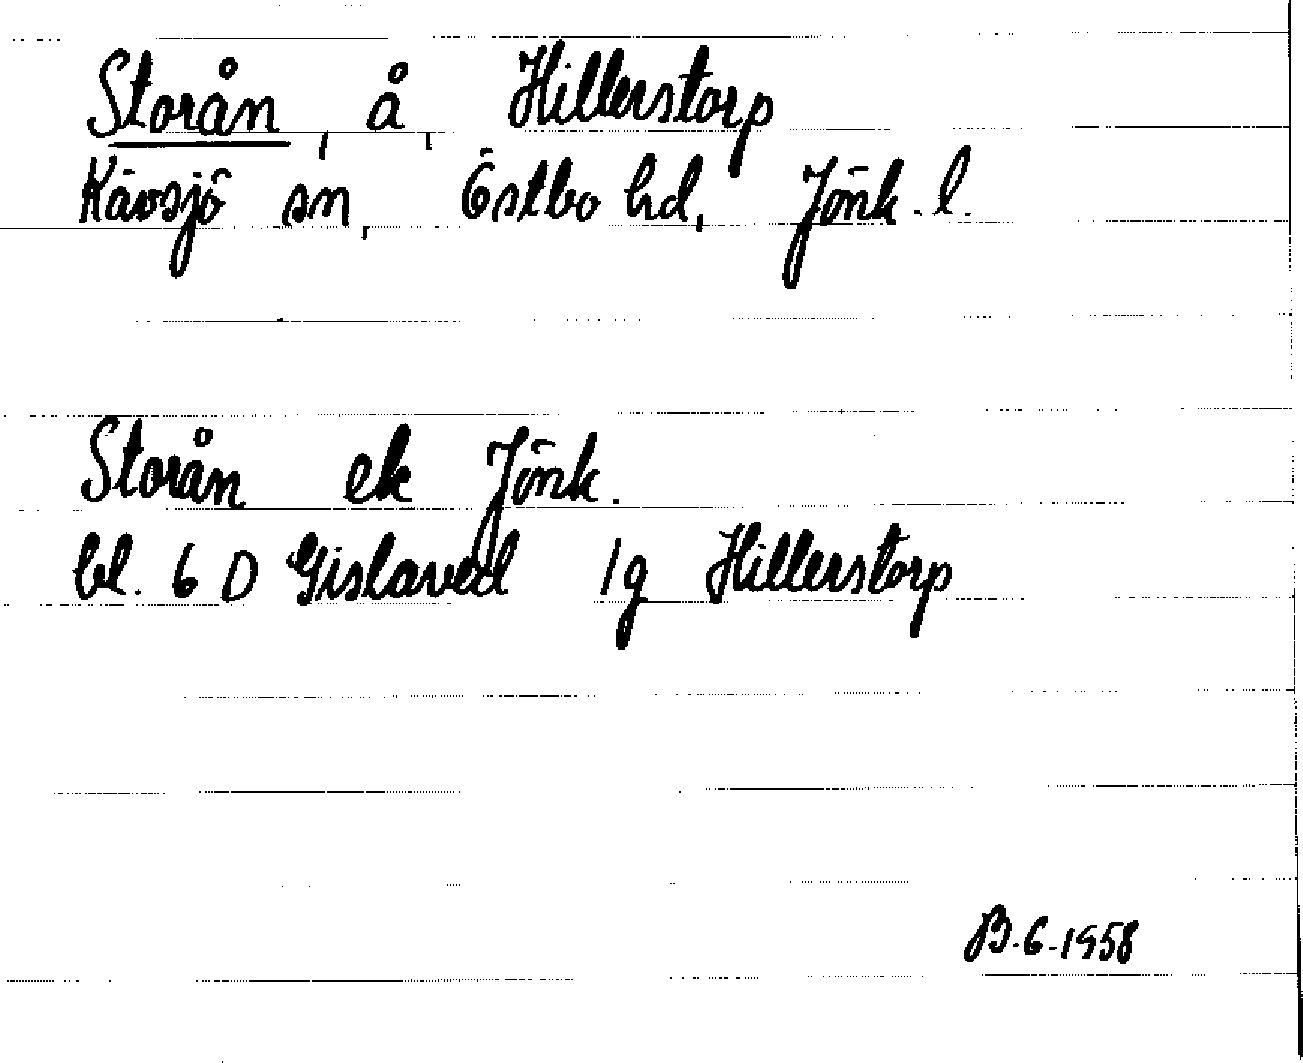 Storån, å, Hillerstorp
Kävsjö sn, Östbo hd, Jönk. l.
Storån ek Jönk.
bl. 6 D Gislaved 1g Hillerstorp
B.6.1958